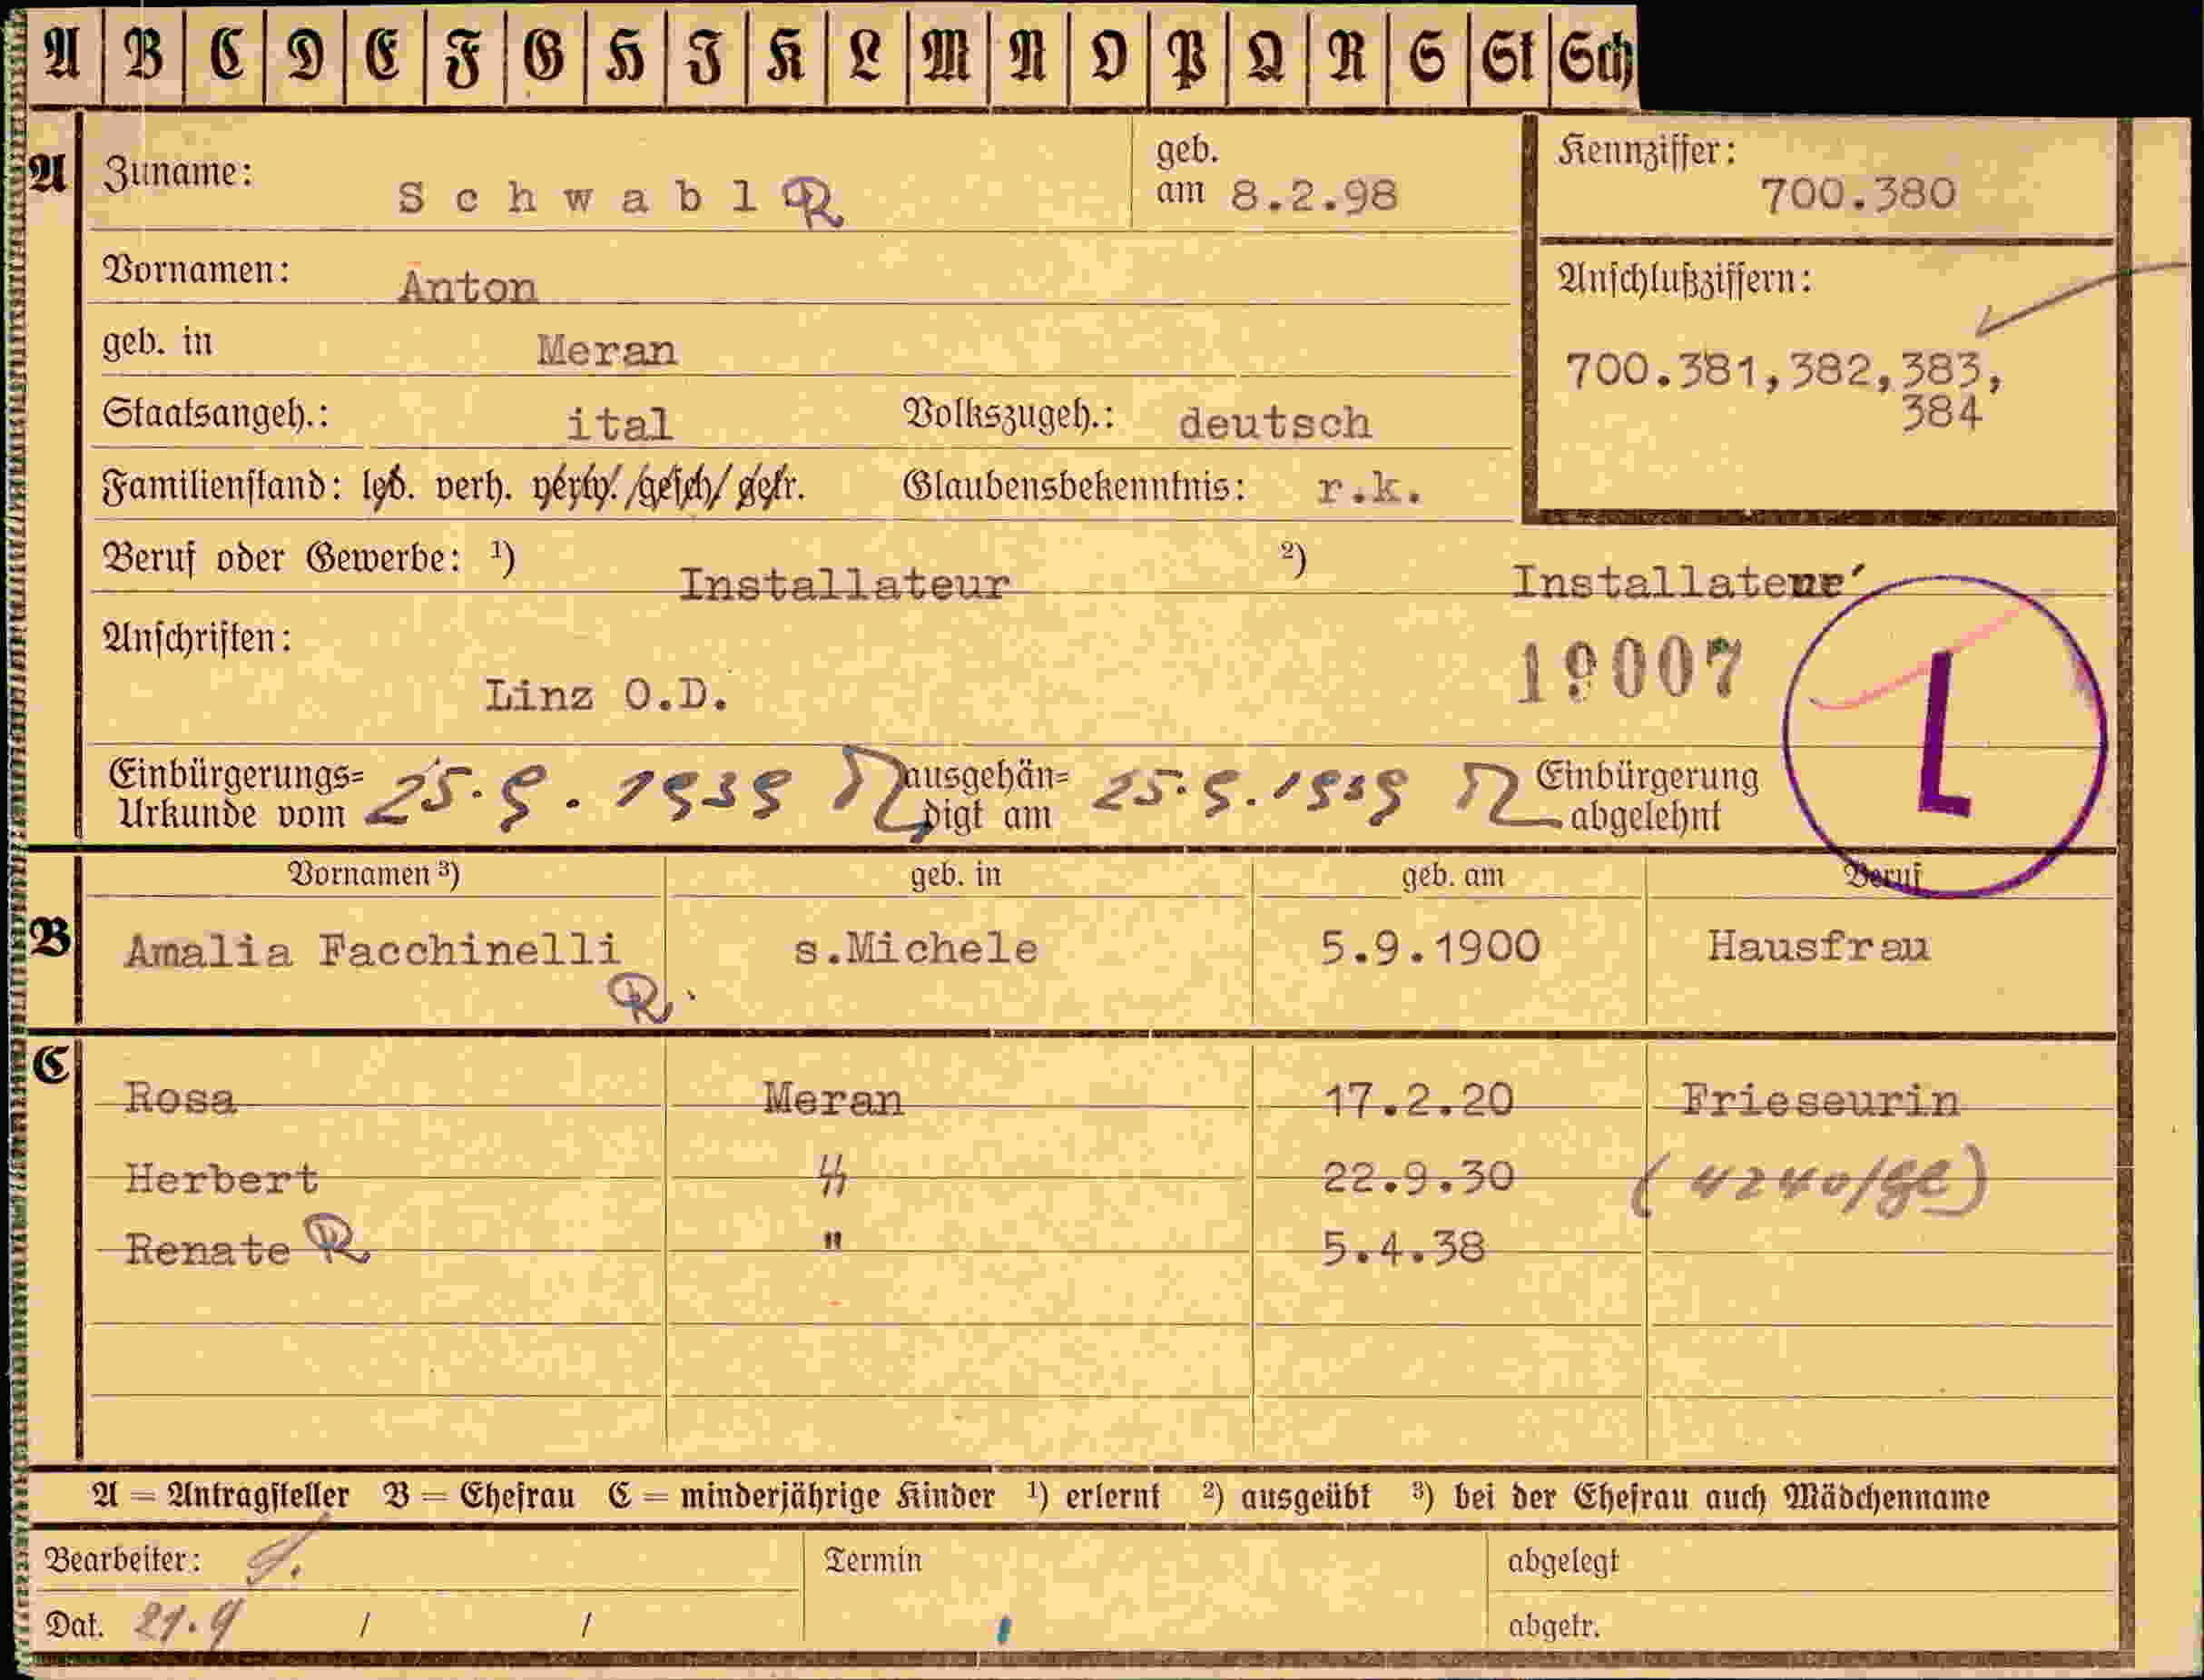 A B C D E F G H J K L M N O P Q R S St Sch
A Zuname: Schwabl R geb. am 8.2.98 Kennziffer: 700.380
Vornamen: Anton Anschlußziffern:
geb. in Meran 700.381,382,383,
384
Staatsangeh.: ital Volkszugeh.: deutsch
Familienstand: led. verh. verw. gesch. getr. Glaubensbekenntnis: r.k.
Beruf oder Gewerbe: ¹) Installateur ²) Installateur
Anschriften: 19007
Linz O.D. L
Einbürgerungs= Urkunde vom 25.9.1939 ausgehän= digt am 25.9.1939 Einbürgerung abgelehnt
Vornamen ³) geb. in geb. am Beruf
B Amalia Facchinelli s.Michele 5.9.1900 Hausfrau
R.
C
Rosa Meran 17.2.20 Frieseurin
Herbert " 22.9.30 (4240/ )
Renate R " 5.4.38
A = Antragsteller B = Ehefrau C = minderjährige Kinder ¹) erlernt ²) ausgeübt ³) bei der Ehefrau auch Mädchenname
Bearbeiter: Termin abgelegt
Dat. 21.9 / / abgetr.